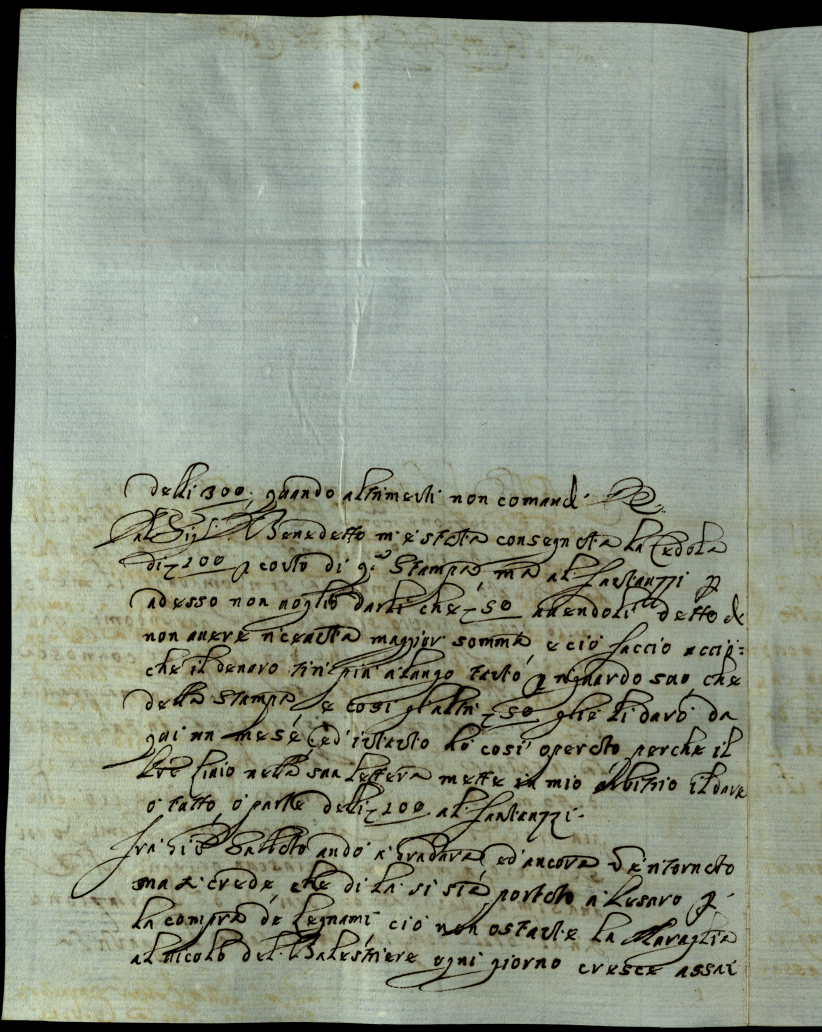 delli 300, quando altrimenti non comandi
Dal Sig. D. Benedetto m'è stata consegnata la Cedola
di 100 p costo di q.a Stampa, ma al Fantauzzi p
adesso non voglio darli che 50 avendoli detto di
non avere ricevuta maggior somma e ciò faccio acciò=
che il denaro tiri più a lungo tanto p riguardo suo, che
della stampa e così gl'altri 50 glie li darò da
qui un mese, ed intanto ho così operato perche il
Pre nella sua lettera mette in mio arbitrio il dare
o tutto o parte delli 100 al Fantauzzi.
Fra Gio andò a ed ancora è ritornato
ma si crede che di là si sia portato a Pesaro p
la compra de Legnami ciò non ostante la Muraglia
al vicolo del Balestriere ogni giorno cresce assai